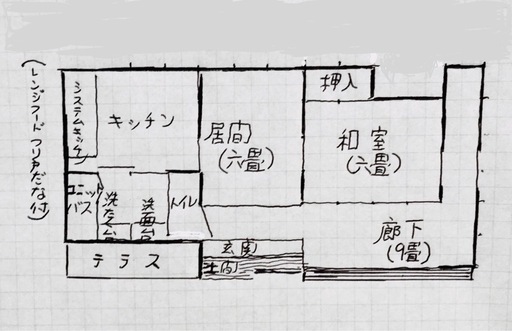 (レンジフード つり戸だな付)
システムキッチン
キッチン
居間
(六畳)
押入
和室
(六畳)
ユニット
バス
洗たく台
洗面台
トイレ
玄関
土間
廊下
(9畳)
テラス